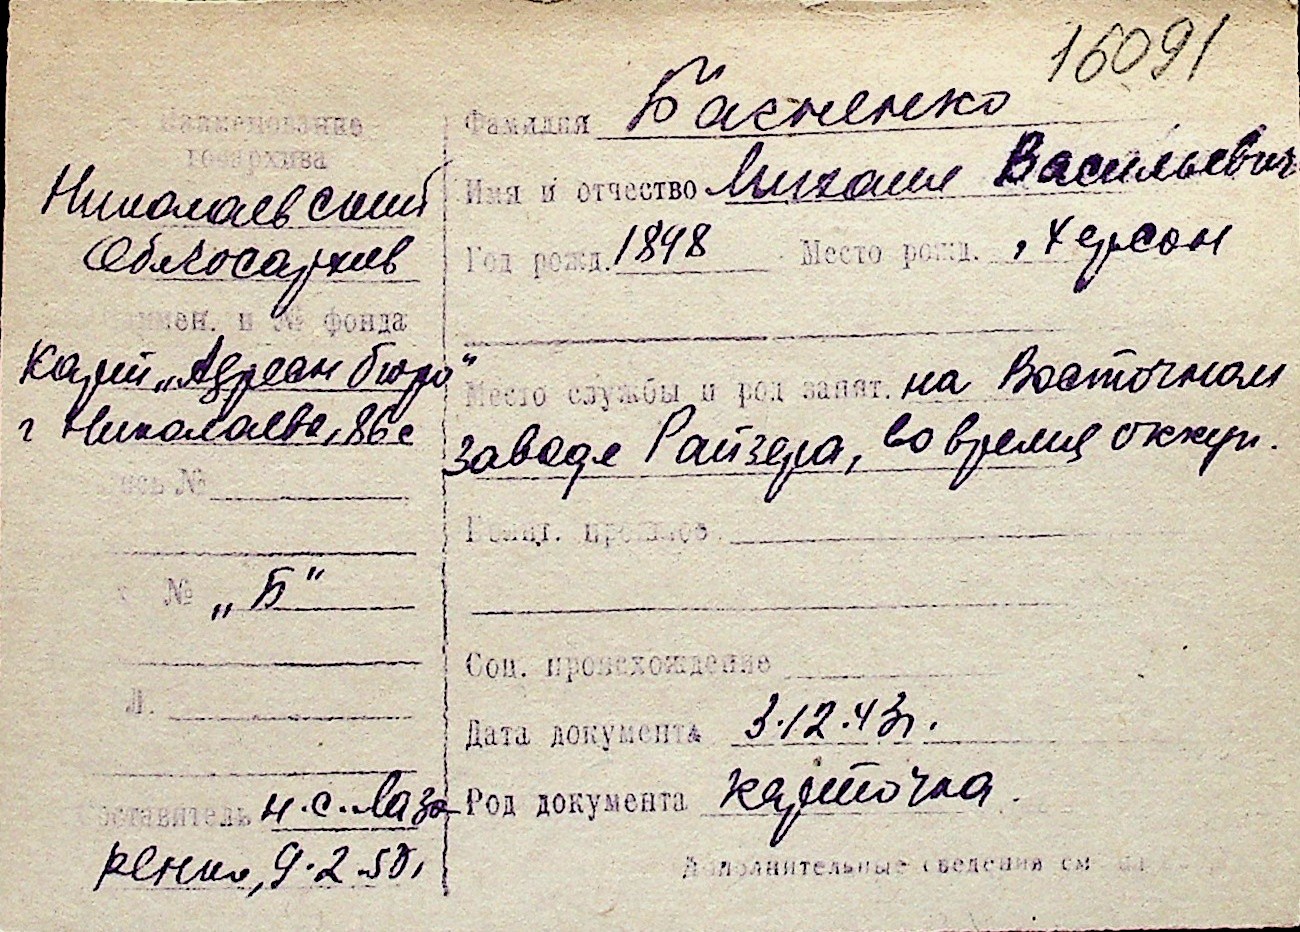 16091
Наименование
госархива
Николаевский
Облгосархив
Наимен. и № фонда
Карт „Адресн бюро"
г Николаева, 86с
опись №
№ „Б"
Л.
Составитель н.с. Лаза
ренко, 9.2.50г
Фамилия
Имя и отчество Михаил Васильевич
Год рожд. 1898 Место рожд. г Херсон
Место службы и род занят. на Восточном
заводе Райзера, во время оккуп.
Полит. прошлое
Соц. происхождение
Дата документа 3.12.43г.
Род документа карточка.
Дополнительные сведения см на